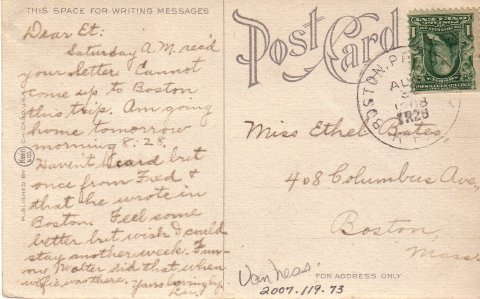 THIS SPACE FOR WRITING MESSAGES
Dear Et:
Saturday A.M. rec'd
your letter. Cannot
come up to Boston
this trip. Am going
home tomorrow
morning 8:28.
Haven't heard but
once from Fred &
that he wrote in
Boston. Feel some
better but wish I could
stay another week. Fun-
ny Walter did that when
Yours lovingly,
PUBLISHED BY
Post Card
BOSTON
1908
Miss Ethel Bates,
408 Columbus Ave,
Boston
Mass.
FOR ADDRESS ONLY
Van Ness.
2007.119.73